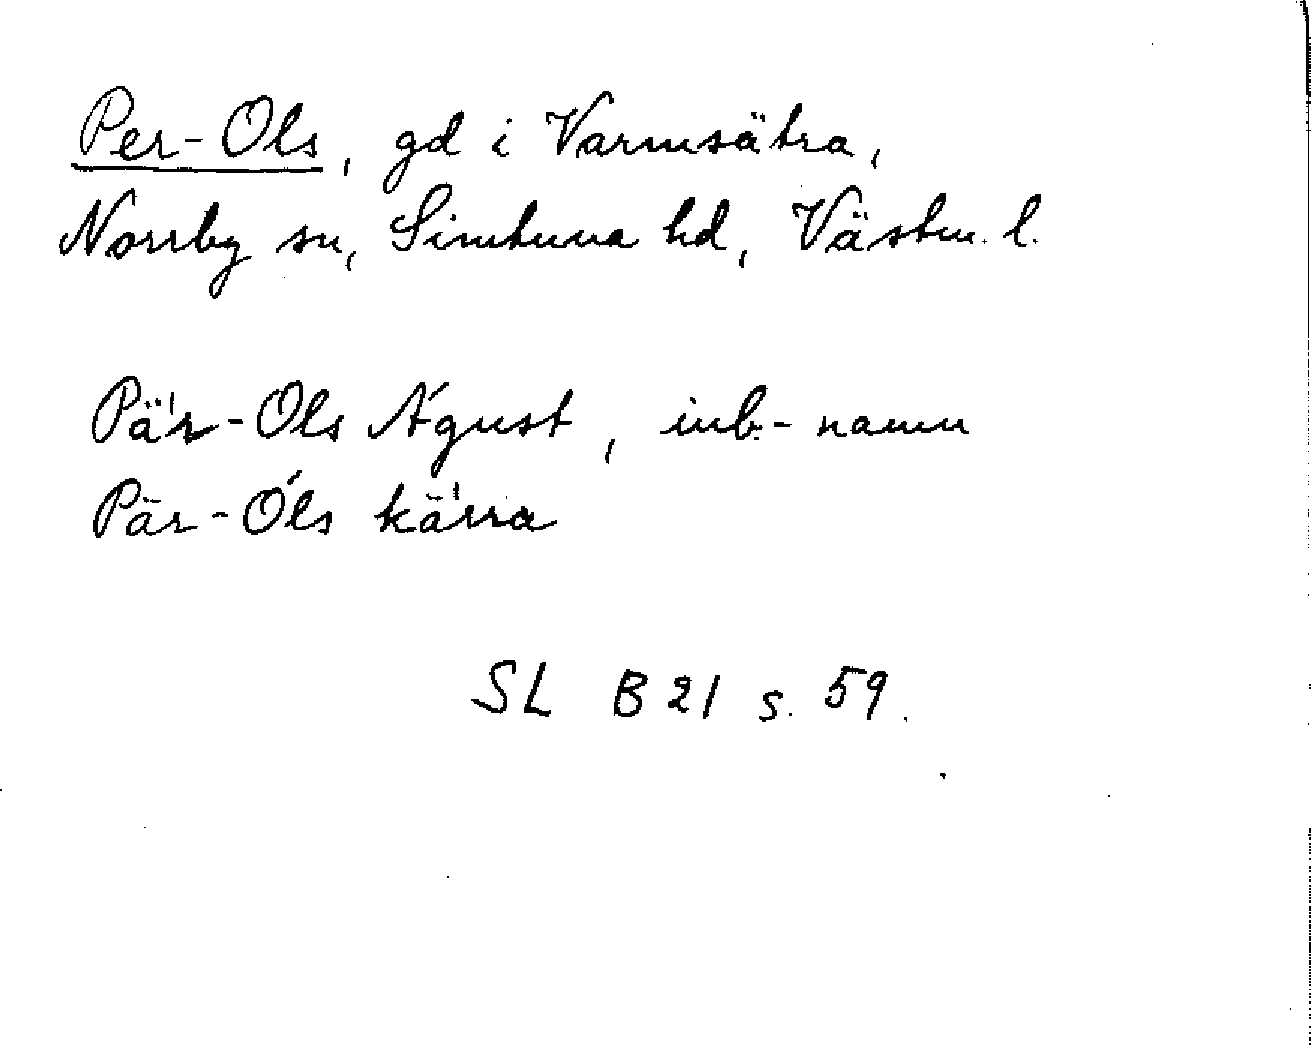 Per-Ols, gd i Varmsätra,
Norrby sn, Simtuna hd, Västm. l.
Pä'r-Ols A'gust, inb.-namn
Pär-O'ls kä'rra
SL B 21 s. 59.